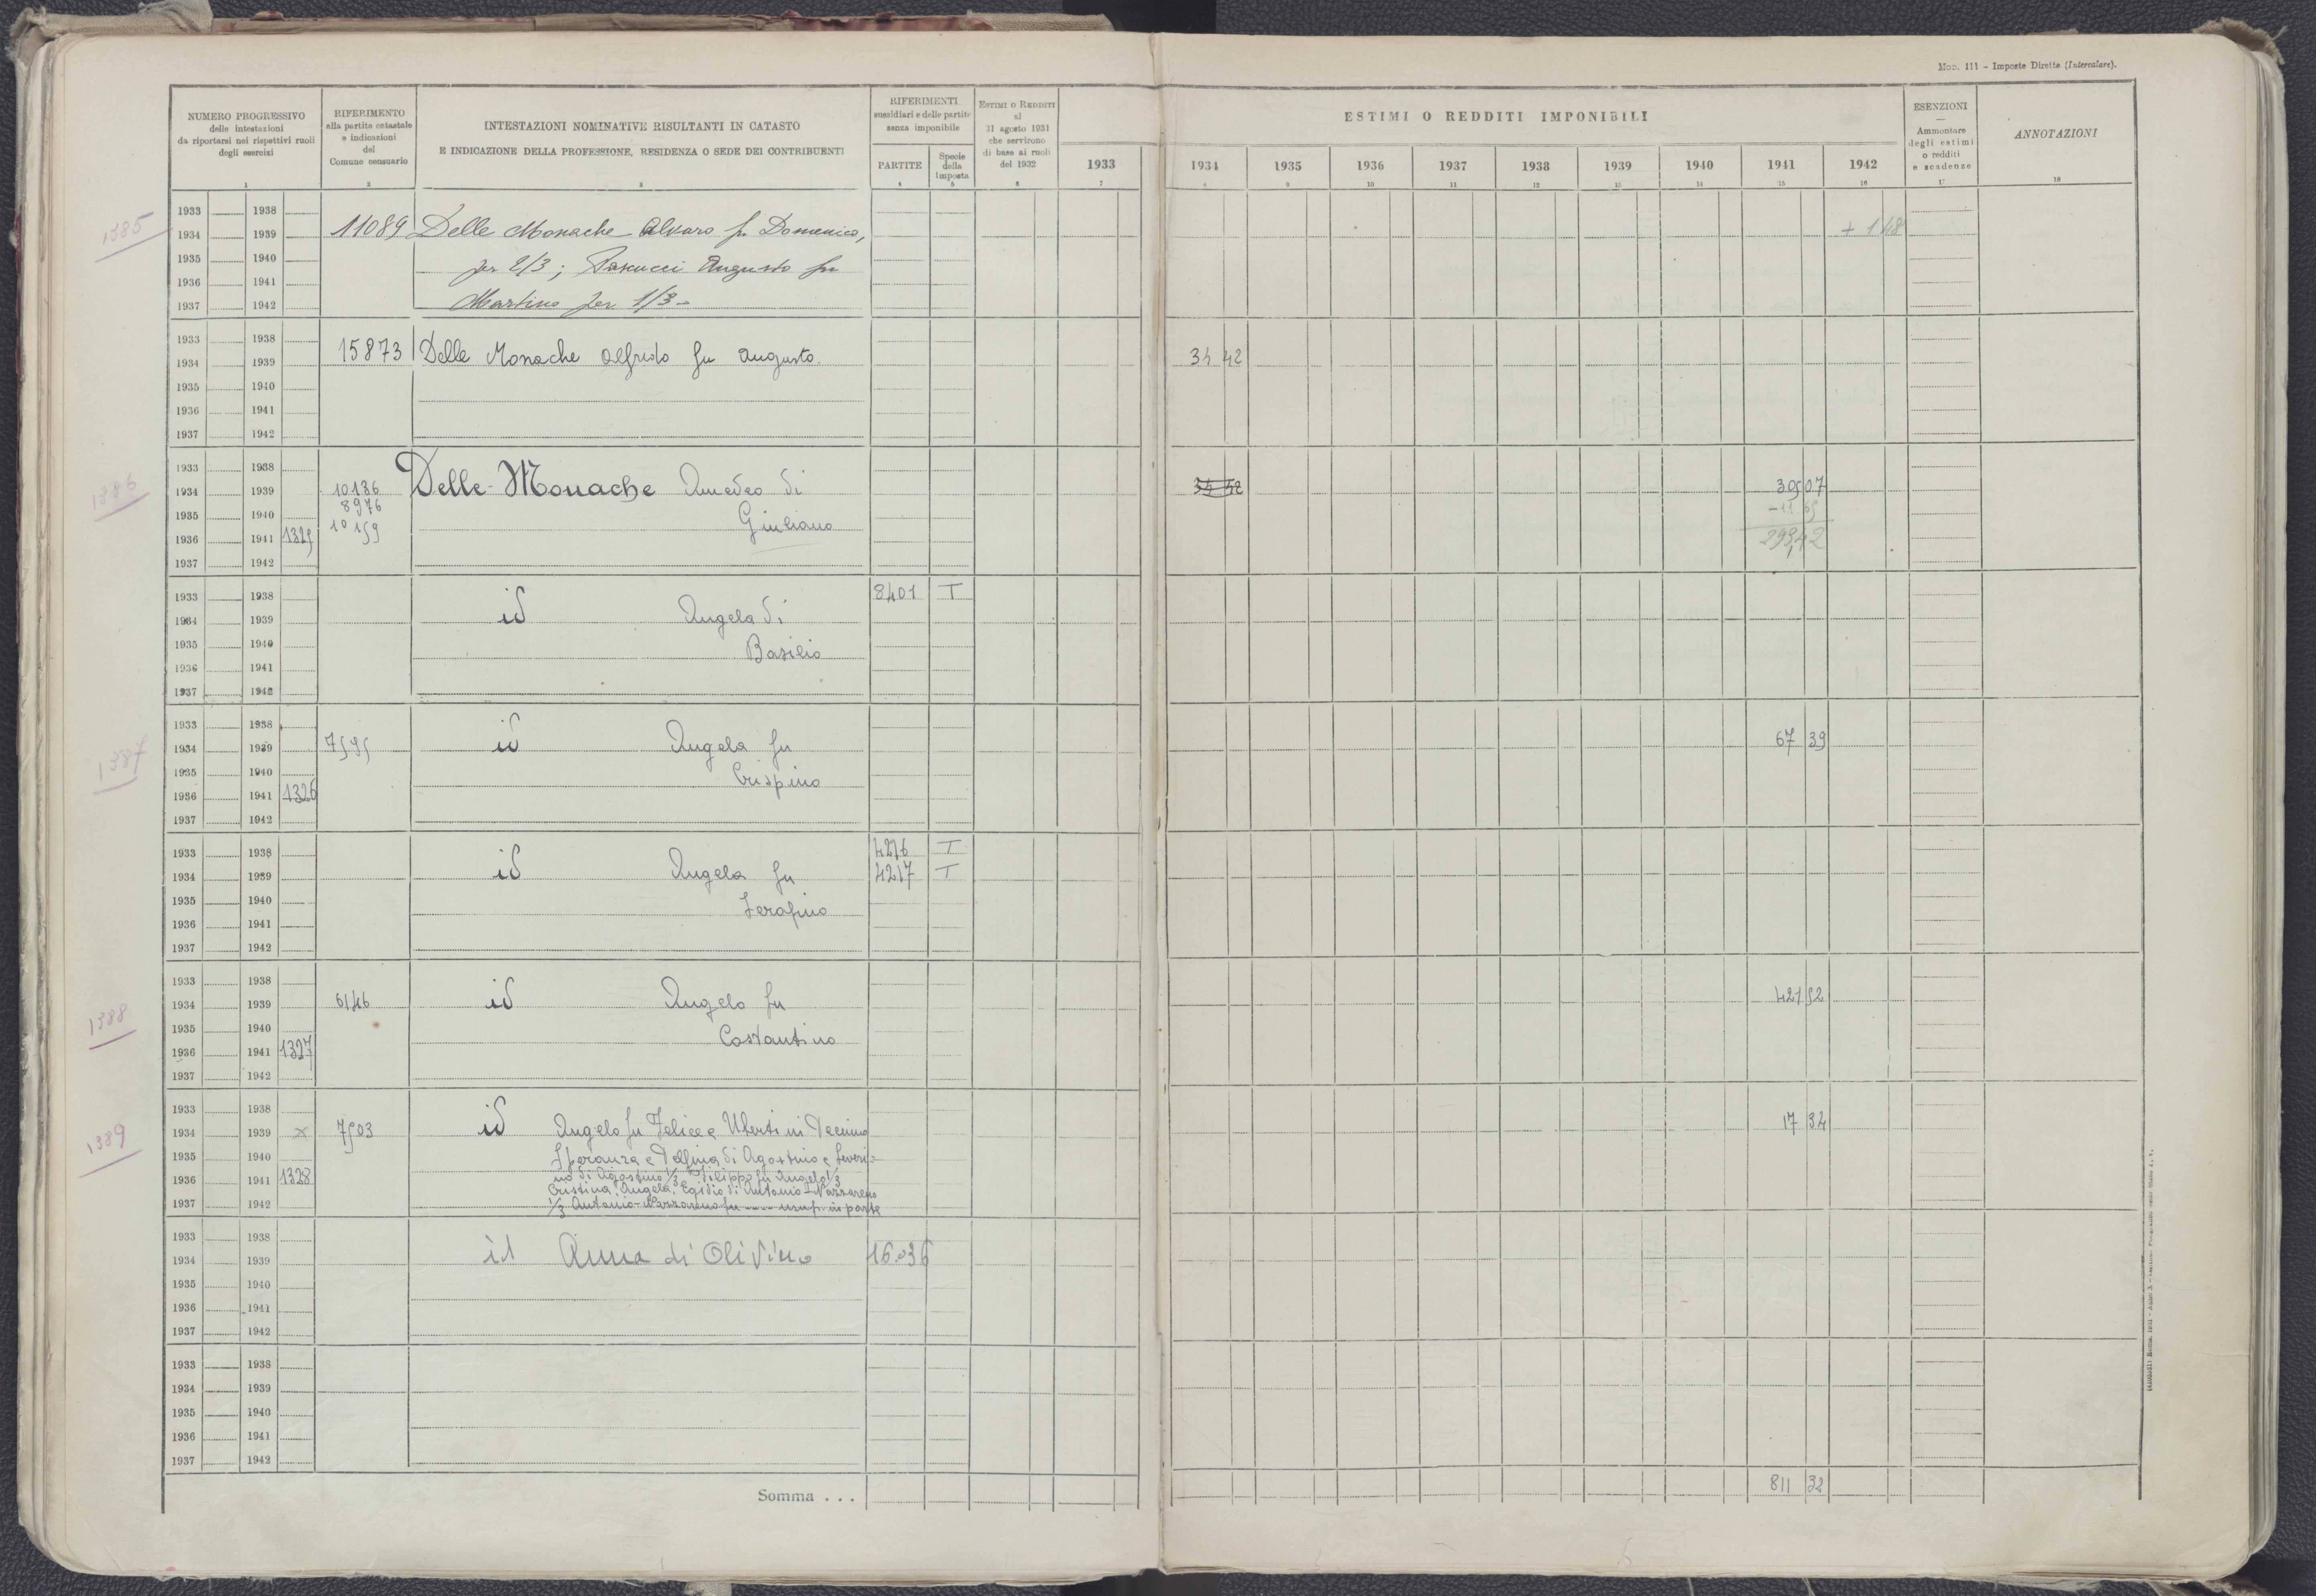 Mod. 111 - Imposte Dirette (Intercalare).
NUMERO PROGRESSIVO
delle intestazioni
da riportarsi nei rispettivi ruoli
degli esercizi
1
RIFERIMENTO
alla partita catastale
e indicazioni
del
Comune censuario
2
INTESTAZIONI NOMINATIVE RISULTANTI IN CATASTO
E INDICAZIONE DELLA PROFESSIONE, RESIDENZA O SEDE DEI CONTRIBUENTI
3
RIFERIMENTI
sussidiari e delle partite
senza imponibile
PARTITE
4
Specie
della
Imposta
5
ESTIMI O REDDITI
al
31 agosto 1931
che servirono
di base ai ruoli
del 1932
6
ESTIMI O REDDITI IMPONIBILI
1933 1934 1935 1936 1937 1938 1939 1940 1941 1942
7 8 9 10 11 12 13 14 15 16
ESENZIONI
Ammontare
degli estimi
o redditi
e scadenze
17
ANNOTAZIONI
18
1385
1933 1938
1934 1939 11089 Delle Monache Alvaro fu Domenico, + 1 48
1935 1940 per 2/3; Pascucci Augusto fu
1936 1941
1937 1942 Martino per 1/3
1933 1938
1934 1939 15873 Delle Monache Alfredo fu Augusto. 34 42
1935 1940
1936 1941
1937 1942
1386
1933 1938
1934 1939 10136 Delle Monache Amedeo di 34 42 305 07
8976
1935 1940 10159 Giuliano
1936 1941 1325 293,42
1937 1942
1933 1938 8401 T
1934 1939 id Angela di
1935 1940 Basilio
1936 1941
1937 1942
1387
1933 1938
1934 1939 7595 id Angela fu 67 39
1935 1940 Crispino
1936 1941 1326
1937 1942
1933 1938 4216 T
1934 1939 id Angela fu 4217 T
1935 1940 Serafino
1936 1941
1937 1942
1388
1933 1938
1934 1939 6146 id Angelo fu 421 52
1935 1940 Costantino
1936 1941 1327
1937 1942
1389
1933 1938
1934 1939 x 7503 id Angelo fu Felice e Ubertini 17 34
1935 1940 Speranza e Delfina di Agostino e Severi=
1936 1941 1328 no di Agostino 1/3 Filippo fu Angelo 1/3
Cristina, Angela, Egidio di Antonio Nazzareno
1937 1942 1/3 Antonio-Nazzareno fu ---- usuf. in parte
1933 1938
1934 1939 id Anna di Olivino 16036
1935 1940
1936 1941
1937 1942
1933 1938
1934 1939
1935 1940
1936 1941
1937 1942
Somma . . . 811 32